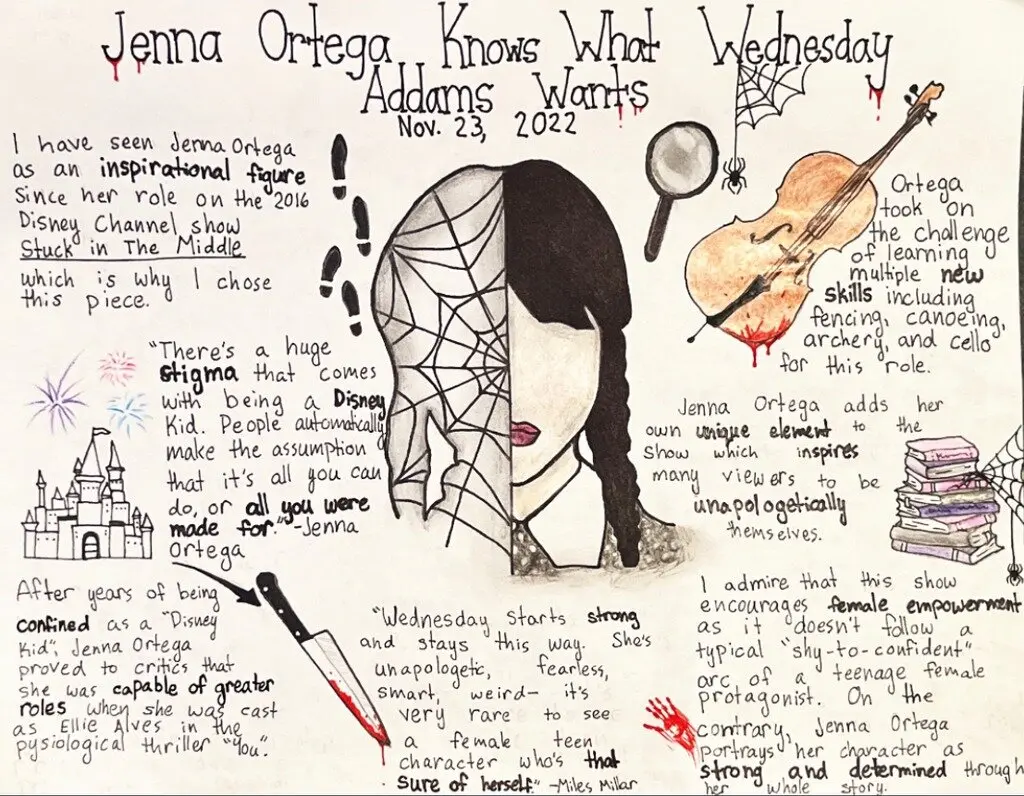 Jenna Ortega Knows What Wednesday
Addams Wants
Nov. 23, 2022
I have seen Jenna Ortega
as an inspirational figure
Since her role on the 2016
Disney Channel show
Stuck in The Middle
which is why I chose
this piece.
"There's a huge
stigma that comes
with being a Disney
Kid. People automatically
make the assumption
that it's all you can
do, or all you were
made for." -Jenna
Ortega
After years of being
confined as a "Disney
Kid", Jenna Ortega
proved to critics that
she was capable of greater
roles when she was cast
as Ellie Alves in the
pysiological thriller "You".
"Wednesday starts strong
and stays this way. She's
unapologetic, fearless,
smart, weird- it's
very rare to see
a female teen
character who's that
sure of herself." -Miles Millar
Ortega
took on
the challenge
of learning
multiple new
skills including
fencing, canoeing,
archery, and cello
for this role.
Jenna Ortega adds her
own unique element to the
show which inspires
many viewers to be
unapologetically
themselves.
I admire that this show
encourages female empowerment
as it doesn't follow a
typical "shy-to-confident"
arc of a teenage female
protagonist. On the
contrary, Jenna Ortega
portrays her character as
strong and determined through
her whole story.